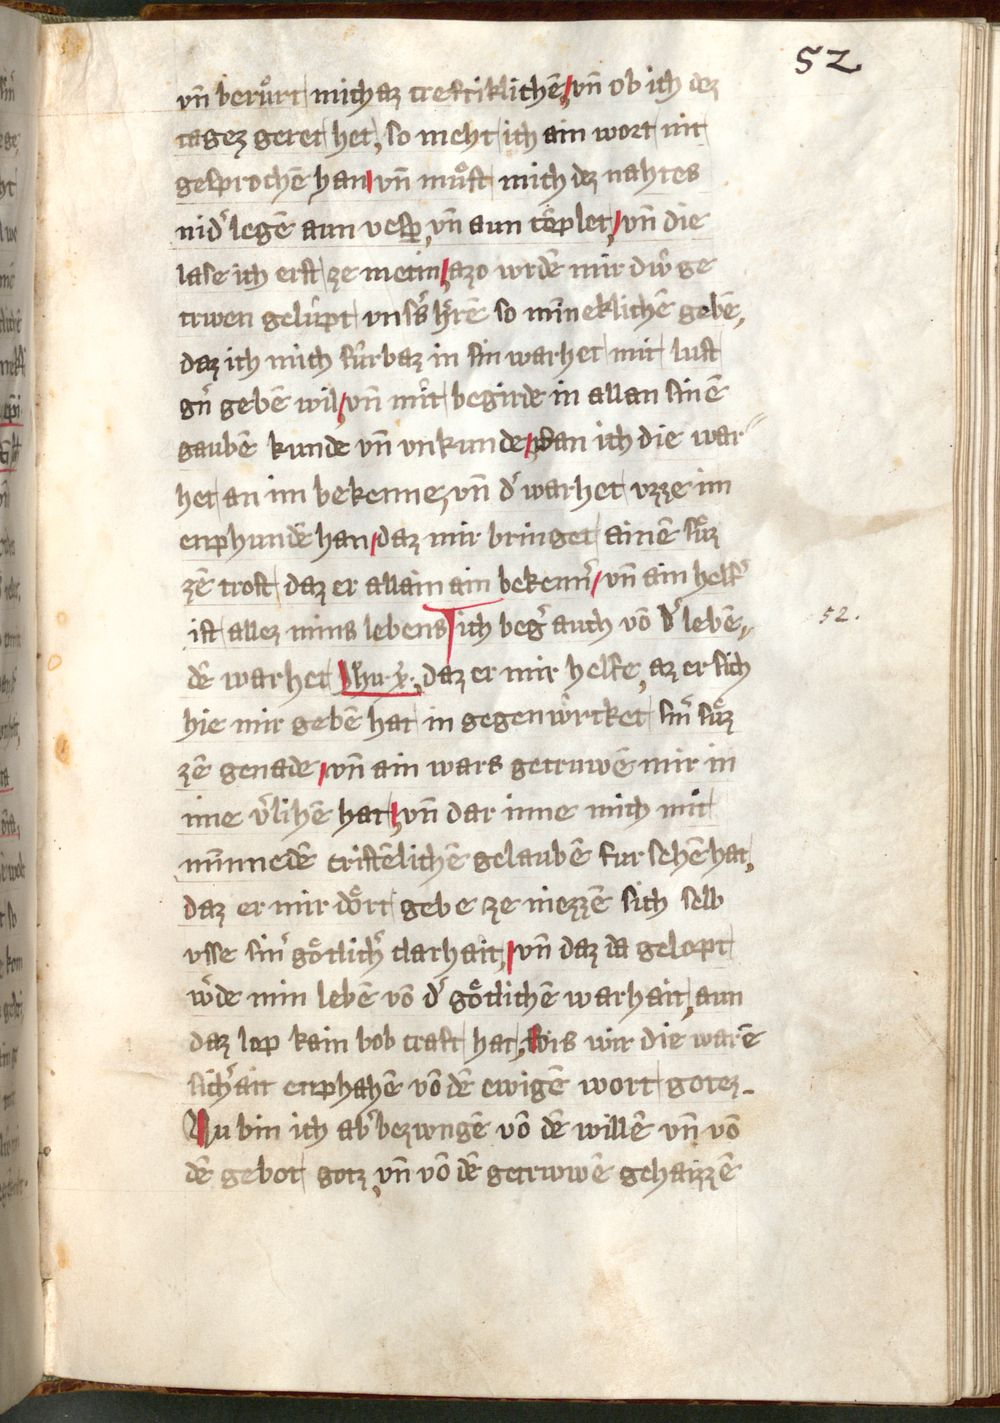 52
vn̄ berů̊rt mich az creftiklichē / vn̄ ob ich dez
tagez geret het, so meht ich ain wort nit
gesprochē han / vn̄ můst mich dez nahtes
nid͛ legē aun vesp̄, vn̄ aun cōplet, / vn̄ die
lase ich erst ze metin, / azo wrdē mir diu̍ ge
trwen gelu̍pt vns͛s h͛rē so minneklichē gebē,
daz ich mich fu̍rbaz in sin warhet mit lust
g͛n gebē wil, / vn̄ mit begirde in allan sinē
gaubē kunde vn̄ vnkunde, / wan ich die war
het an im bekenne, vn̄ d͛ warhet vzze im
enphundē han / daz mir bringet ainē sůz
zē trost daz er allain ain bekenn͛ / vn̄ ain helf͛
ist allez mins lebens ich beg͛ auch vō d͛ lebē,,
52.
dē warhet Jhu. x͛. daz er mir helfe, az er sich
hie mir gebē hat in gegenwo̍rtket sin͛ sůz
zē genade, / vn̄ ain wars getruwē mir in
ime v͛lihē hat, / vn̄ dar inne mich mit
minnedē cristēlichē gelaubē fur sehē hat,
daz er mir do̍rt gebe ze niezzē sich selb
vsse sin͛ go̍tlich͛ clarhait, / vn̄ daz da gelopt
w͛de min lebē vō d͛ go̍tlichē warhait, aun
daz lop kain bob craft hat, / bis wir die warē
sich͛ait enphahē vō dē ewigē wort gotez.
Nu bin ich ab͛ bezwngē vō dē willē vn̄ vō
dē gebot gotz, vn̄ vō dē getrwwē gehaizzē